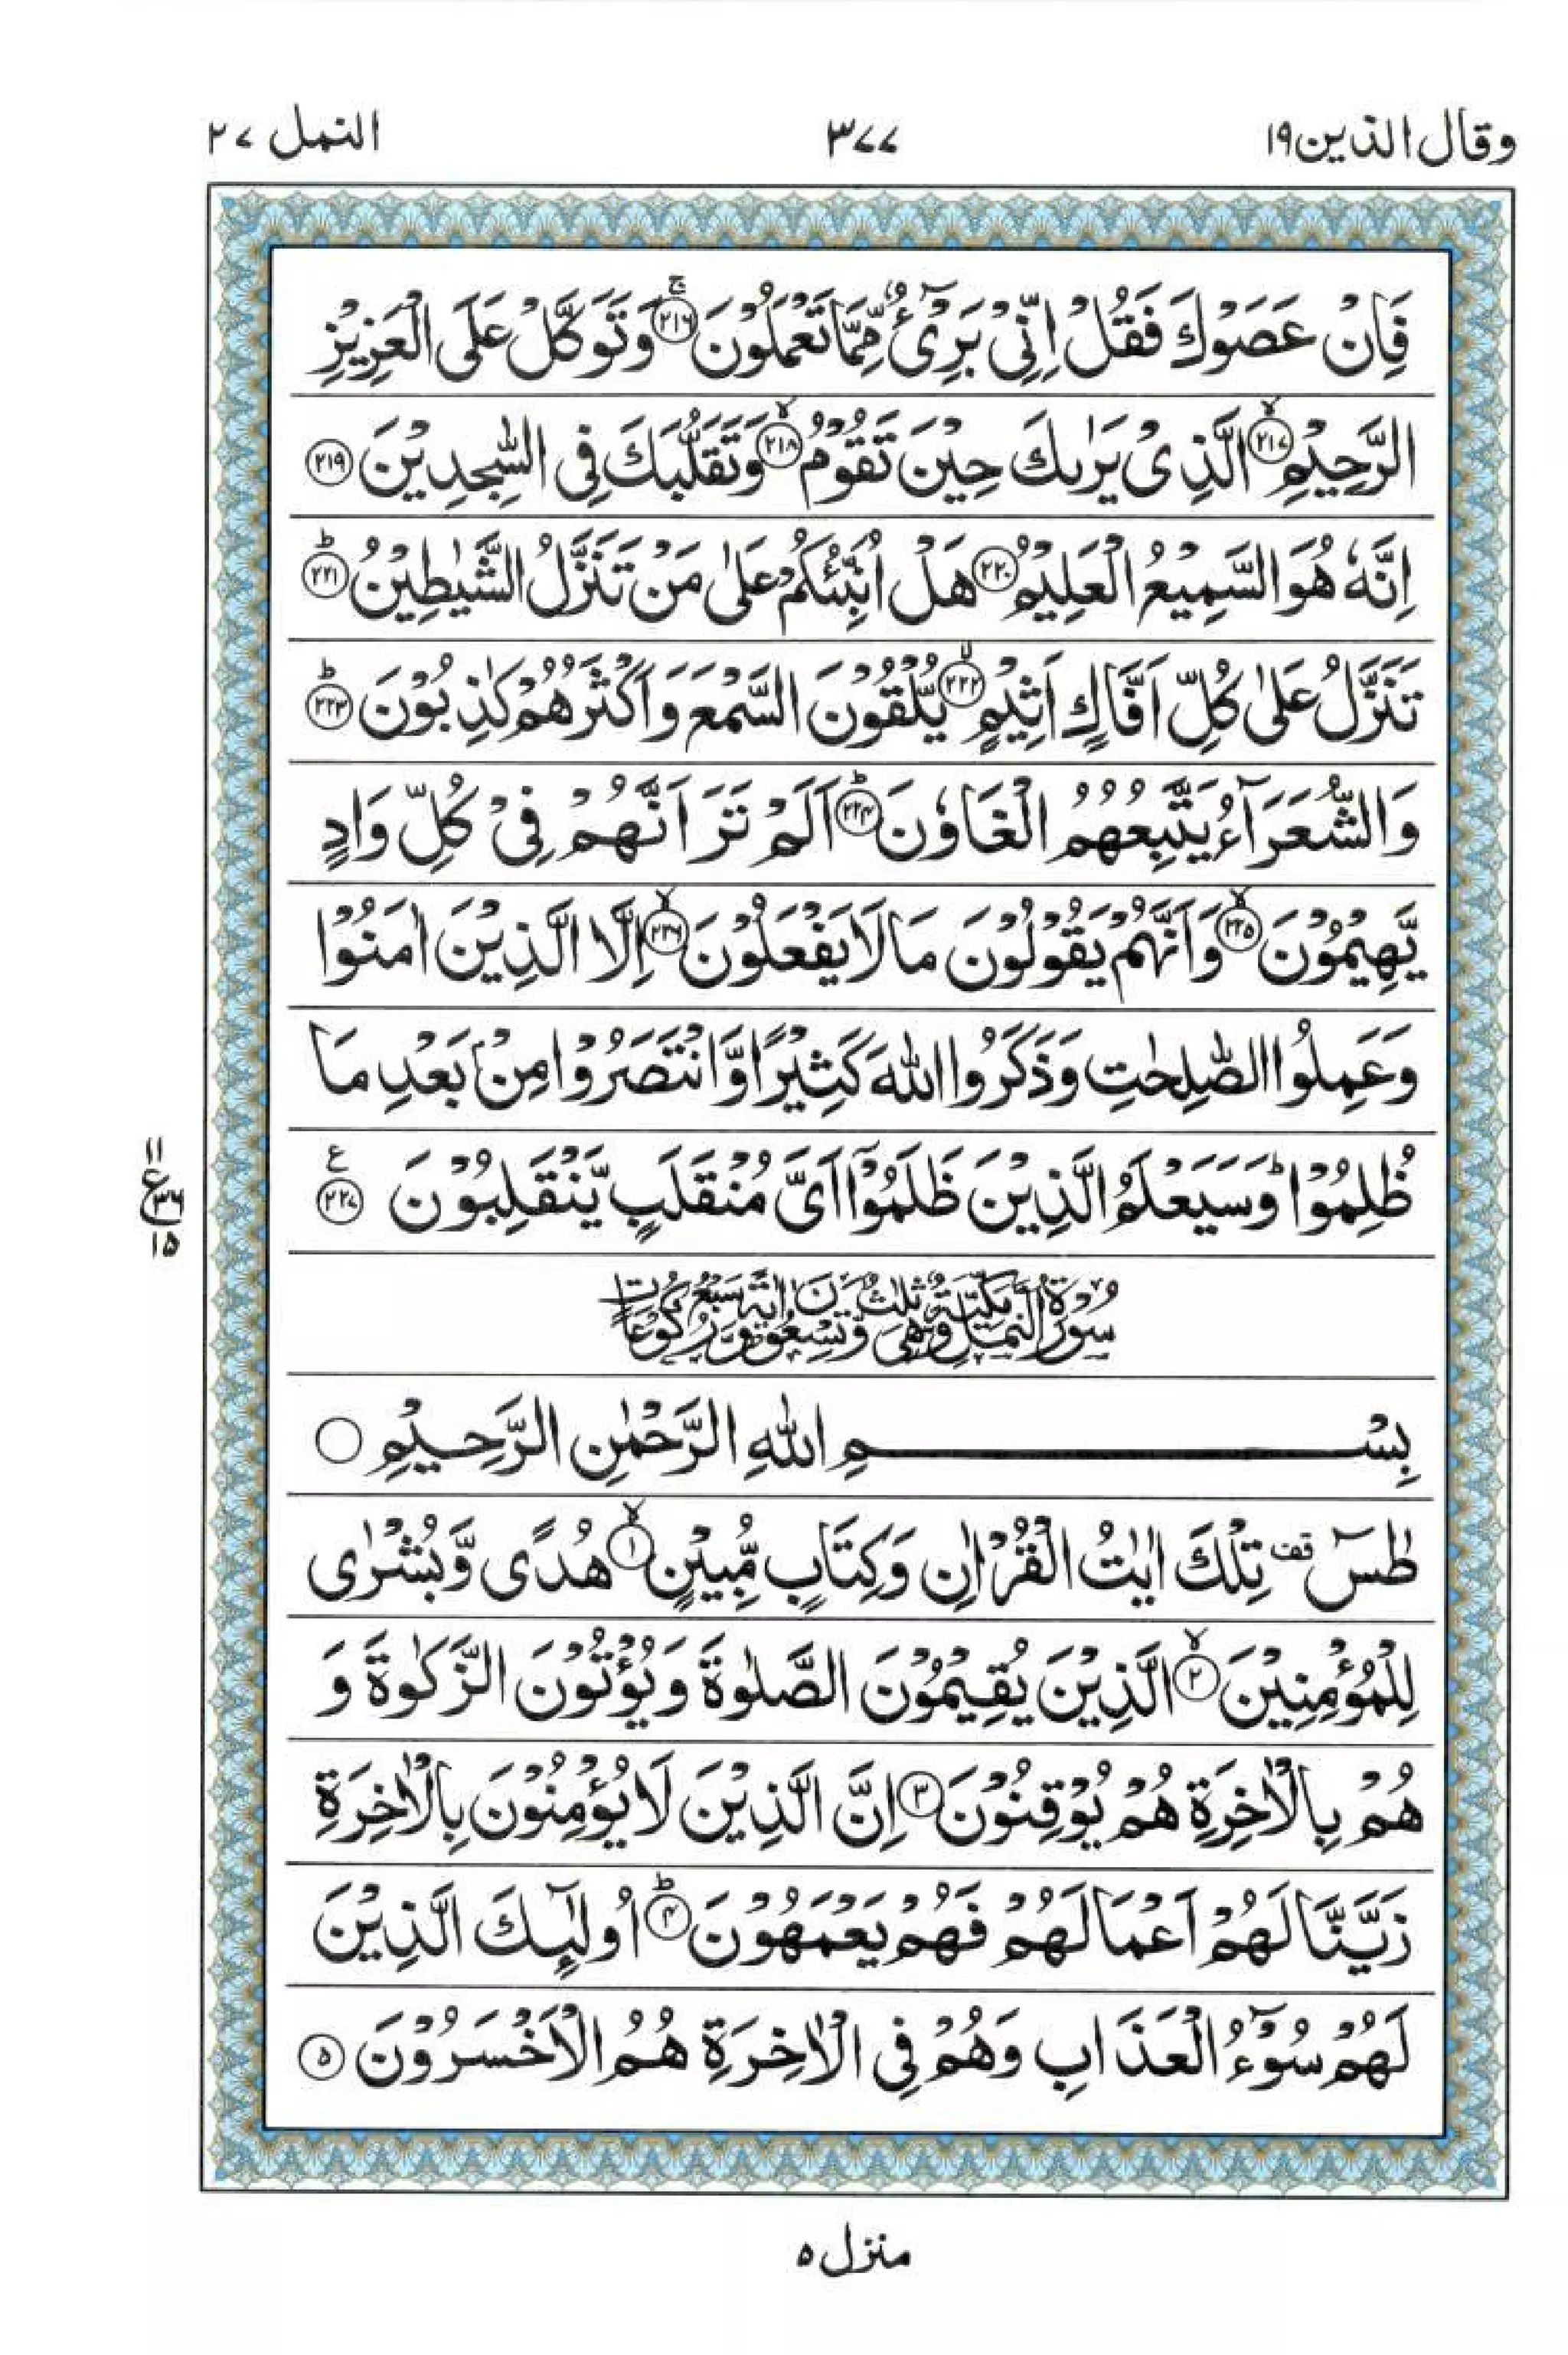 وقال الذين ١٩ ٣٧٧ النمل ٢٧
فَاِنْ عَصَوْكَ فَقُلْ اِنِّیْ بَرِیْٓءٌ مِّمَّا تَعْمَلُوْنَ ۚ﴿۲۱۶﴾ وَتَوَكَّلْ عَلَی الْعَزِیْزِ
الرَّحِیْمِ ۙ﴿۲۱۷﴾ الَّذِیْ یَرٰىكَ حِیْنَ تَقُوْمُ ۙ﴿۲۱۸﴾ وَتَقَلُّبَكَ فِی السّٰجِدِیْنَ ﴿۲۱۹﴾
اِنَّهٗ هُوَ السَّمِیْعُ الْعَلِیْمُ ﴿۲۲۰﴾ هَلْ اُنَبِّئُكُمْ عَلٰی مَنْ تَنَزَّلُ الشَّیٰطِیْنُ ؕ﴿۲۲۱﴾
تَنَزَّلُ عَلٰی كُلِّ اَفَّاكٍ اَثِیْمٍ ۙ﴿۲۲۲﴾ یُّلْقُوْنَ السَّمْعَ وَاَكْثَرُهُمْ كٰذِبُوْنَ ؕ﴿۲۲۳﴾
وَالشُّعَرَآءُ یَتَّبِعُهُمُ الْغَاوٗنَ ؕ﴿۲۲۴﴾ اَلَمْ تَرَ اَنَّهُمْ فِیْ كُلِّ وَادٍ
یَّهِیْمُوْنَ ۙ﴿۲۲۵﴾ وَاَنَّهُمْ یَقُوْلُوْنَ مَا لَا یَفْعَلُوْنَ ۙ﴿۲۲۶﴾ اِلَّا الَّذِیْنَ اٰمَنُوْا
وَعَمِلُوا الصّٰلِحٰتِ وَذَكَرُوا اللّٰهَ كَثِیْرًا وَّانْتَصَرُوْا مِنْۢ بَعْدِ مَا
ظُلِمُوْا ؕ وَسَیَعْلَمُ الَّذِیْنَ ظَلَمُوْۤا اَیَّ مُنْقَلَبٍ یَّنْقَلِبُوْنَ ﴿۲۲۷﴾ ع
۱۱
ع ۳۶
۱۵
سُوْرَةُ النَّمْلِ مَكِّیَّةٌ وَّهِیَ ثَلٰثٌ وَّتِسْعُوْنَ اٰیَةً وَّسَبْعُ رُكُوْعَاتٍ
بِسْمِ اللّٰهِ الرَّحْمٰنِ الرَّحِیْمِ
طٰسٓ ۫ قف تِلْكَ اٰیٰتُ الْقُرْاٰنِ وَكِتَابٍ مُّبِیْنٍ ۙ﴿۱﴾ هُدًی وَّبُشْرٰی
لِلْمُؤْمِنِیْنَ ۙ﴿۲﴾ الَّذِیْنَ یُقِیْمُوْنَ الصَّلٰوةَ وَیُؤْتُوْنَ الزَّكٰوةَ وَ
هُمْ بِالْاٰخِرَةِ هُمْ یُوْقِنُوْنَ ﴿۳﴾ اِنَّ الَّذِیْنَ لَا یُؤْمِنُوْنَ بِالْاٰخِرَةِ
زَیَّنَّا لَهُمْ اَعْمَالَهُمْ فَهُمْ یَعْمَهُوْنَ ؕ﴿۴﴾ اُولٰٓىِٕكَ الَّذِیْنَ
لَهُمْ سُوْٓءُ الْعَذَابِ وَهُمْ فِی الْاٰخِرَةِ هُمُ الْاَخْسَرُوْنَ ﴿۵﴾
منزل ٥